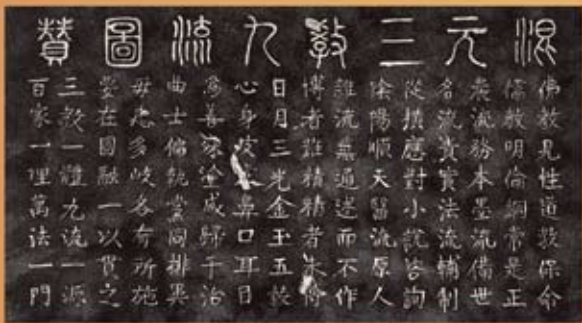 混元三教九流圖贊
佛教見性道教保命
儒教明倫綱常是正
農流務本墨流備世
名流責實法流輔制
從橫應對小說咨詢
陰陽順天醫流原人
雜流兼通述而不作
博者難精精者未博
日月三光金玉五穀
心身皮鼻口耳目
為善殊塗咸歸于治
曲士偏執黨同排異
毋患多歧各有所施
要在圓融一以貫之
三教一體九流一源
百家一理萬法一門